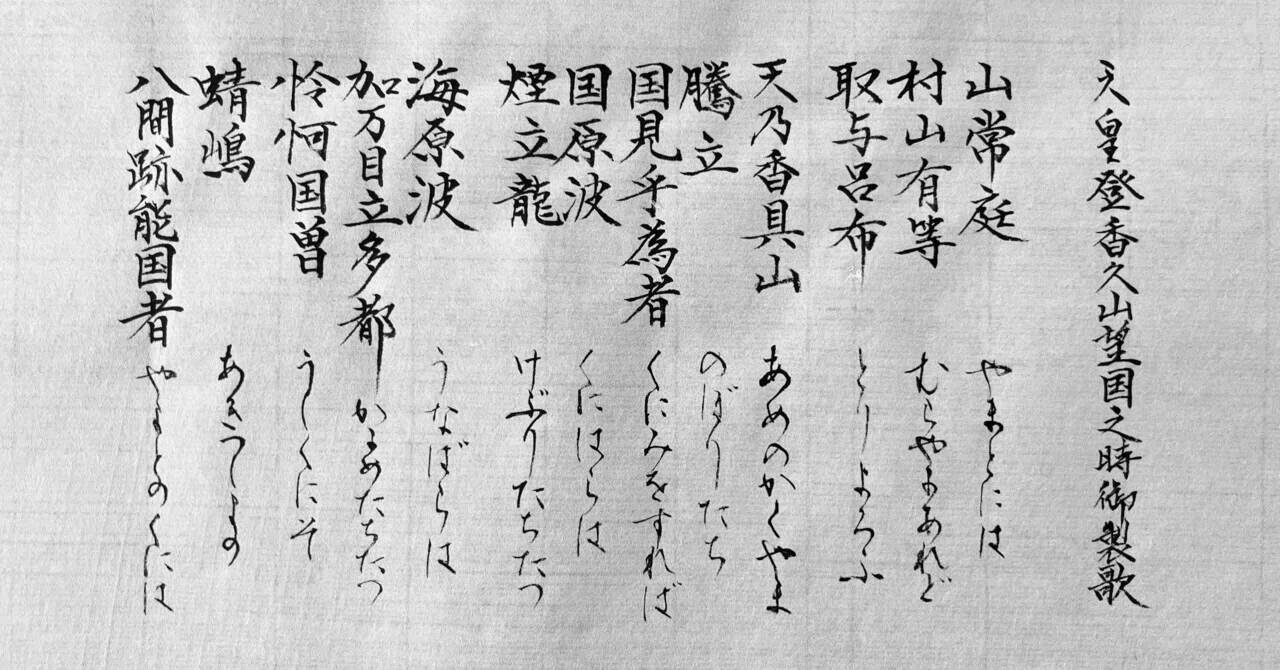 天皇登香久山望国之時御製歌
山常庭 やまとには
村山有等 むらやまあれど
取与呂布 とりよろふ
天乃香具山 あめのかぐやま
騰立 のぼりたち
国見乎為者 くにみをすれば
国原波 くにはらは
煙立龍 けぶりたちたつ
海原波 うなばらは
加万目立多都 かまめたちたつ
怜怜国曽 うしくにそ
蜻嶋 あきつしまの
八間跡能国者 やまとのくには